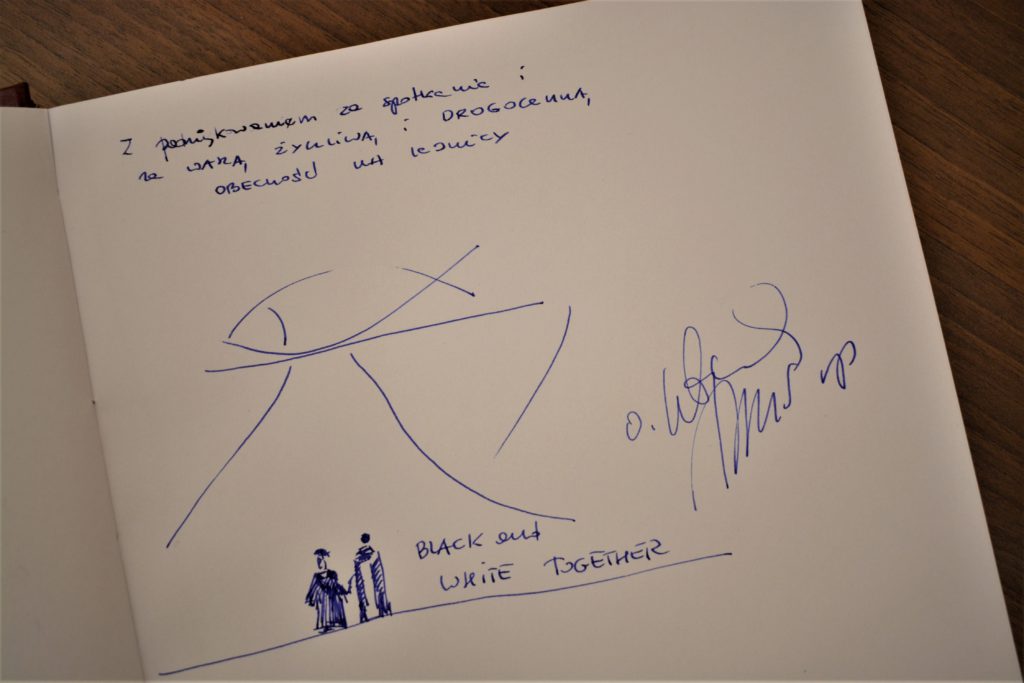 Z podziękowaniem za spotkanie i
za ŻYCZLIWĄ i DROGOCENNĄ
OBECNOŚĆ NA LEDNICY
o. op
BLACK and
WHITE TOGETHER